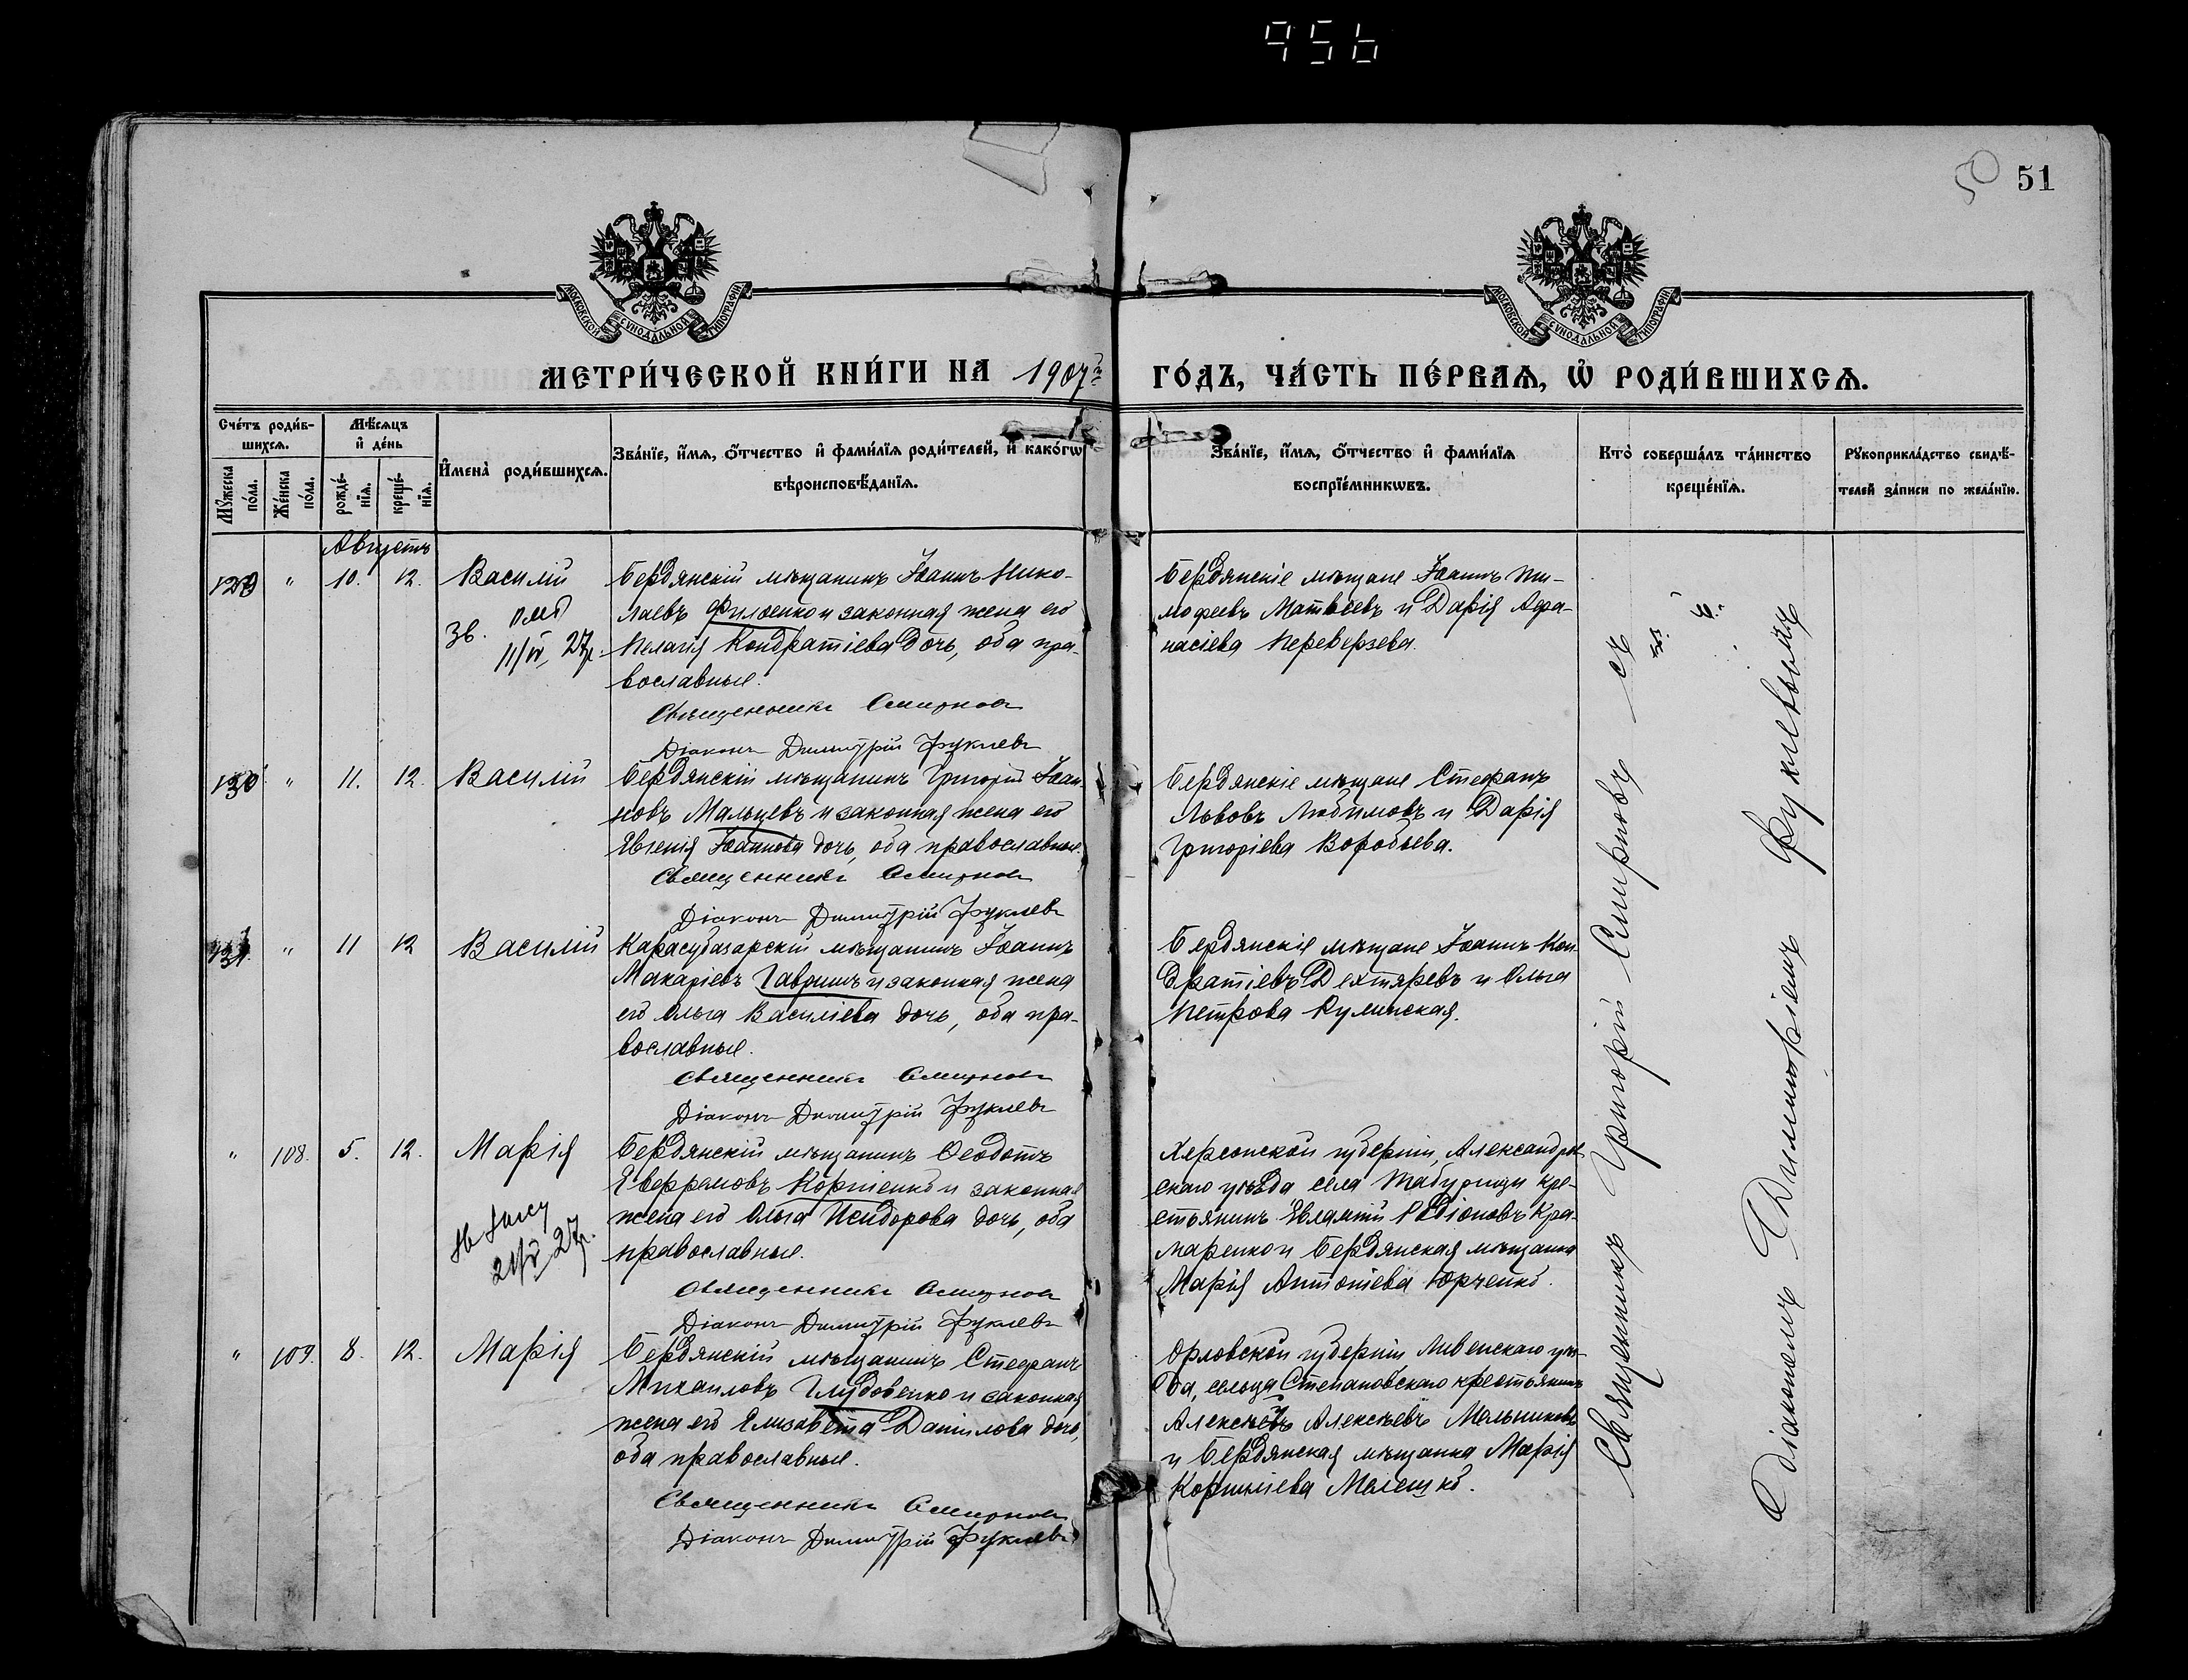 956
50 51
МОСКОВСКОЙ СУНОДАЛЬНОЙ ТИПОГРАФІИ
МОСКОВСКОЙ СУНОДАЛЬНОЙ ТИПОГРАФІИ
МЕТРИ́ЧЕСКОЙ КНИ́ГИ НА 1907й ГО́ДЪ, ЧА́СТЬ ПЕ́РВАѦ, Ѡ҆ РОДИ́ВШИХСѦ.
Сче́тъ роди́в-
шихсѧ.
Мꙋ́жеска по́ла.
Же́нска по́ла.
Мѣ́сѧцъ
и҆ де́нь
рожде́-
нїѧ.
креще́-
нїѧ.
И҆мена̀ роди́вшихсѧ.
Зва́нїе, и҆́мѧ, ѻ҆́тчество и҆ фами́лїѧ роди́телей, и҆ како́гѡ
вѣроисповѣ́данїѧ.
Зва́нїе, и҆́мѧ, ѻ҆́тчество и҆ фами́лїѧ
воспрїе́мникѡвъ.
Кто̀ соверша́лъ та́инство
креще́нїѧ.
Рꙋкоприкла́дство свидѣ́-
телей за́писи по жела́нїю.
Августъ
129 " 10. 12. Василій
Бердянскій мѣщанинъ Іоаннъ Нико-
лаевъ и законная жена его
Пелагія Кондратіева дочь, оба пра-
вославные.
Священникъ Смирновъ
Діаконъ Димитрій Фукиевъ
Бердянскіе мѣщане Іоаннъ Ти-
мофеевъ Матвѣевъ и Дарія Афа-
насіева Переверзева.
зв.
11/IV, 27г.
130 " 11. 12. Василій
Бердянскій мѣщанинъ Григорій Іоан-
новъ Мальцевъ и законная жена его
Евгенія Іоаннова дочь, оба православные.
Священникъ Смирновъ
Діаконъ Димитрій Фукиевъ
Бердянскіе мѣщане Стефанъ
Львовъ Любимовъ и Дарія
Григоріева Воробьева.
131. " 11 12 Василій
Карасубазарскій мѣщанинъ Іоаннъ
Макаріевъ Гавришъ и законная жена
его Ольга Василіева дочь, оба пра-
вославные.
Священникъ Смирновъ
Діаконъ Димитрій Фукиевъ
Бердянскіе мѣщане Іоаннъ Кон-
дратіевъ Дехтяревъ и Ольга
Петрова Руминская.
" 108. 5. 12. Марія
Бердянскій мѣщанинъ Ѳеодотъ
Евфремовъ Корніенко и законная
жена его Ольга Исидорова дочь, оба
православные.
Священникъ Смирновъ
Діаконъ Димитрій Фукиевъ
Херсонской губерніи, Александрій-
скаго уѣзда села Табурищи кре-
стьянинъ Евлампій Родіоновъ Кра-
маренко и Бердянская мѣщанка
Марія Антоніева Юрченко.
27г.
" 109. 8. 12. Марія
Бердянскій мѣщанинъ Стефанъ
Михаиловъ и законная
жена его Елизавета Даніилова дочь,
оба православные.
Священникъ Смирновъ
Діаконъ Димитрій Фукиевъ
Орловской губерніи Ливенскаго уѣз-
да, сельца Степановскаго крестьянинъ
Алексѣй Алексѣевъ Мельниковъ
и Бердянская мѣщанка Марія
Корниліева Мелешко.
Священникъ Григорій Смирновъ съ
діакономъ Димитріемъ Фукиевымъ